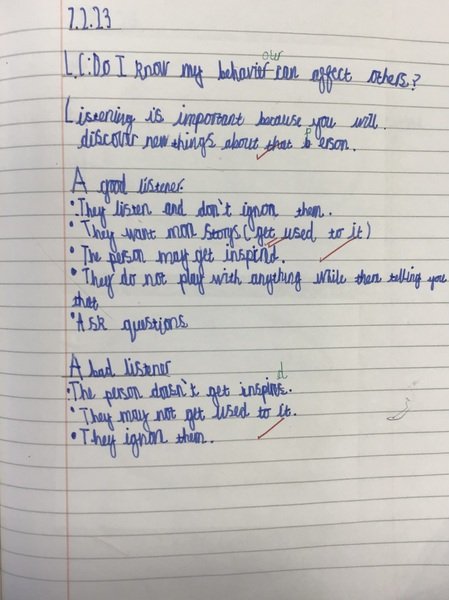 7.2.23
L.C: Do I know my behaviour can affect others?
Listening is important because you will
discover new things about that person.
A good listener
• They listen and don't ignon them.
• They want mon storys (get used to it)
• The person may get inspind.
• They do not play with anything while then telling you
that
• Ask questions
A bad listener
• The person doesn't get inspird.
• They may not get used to it.
• They ignon them.